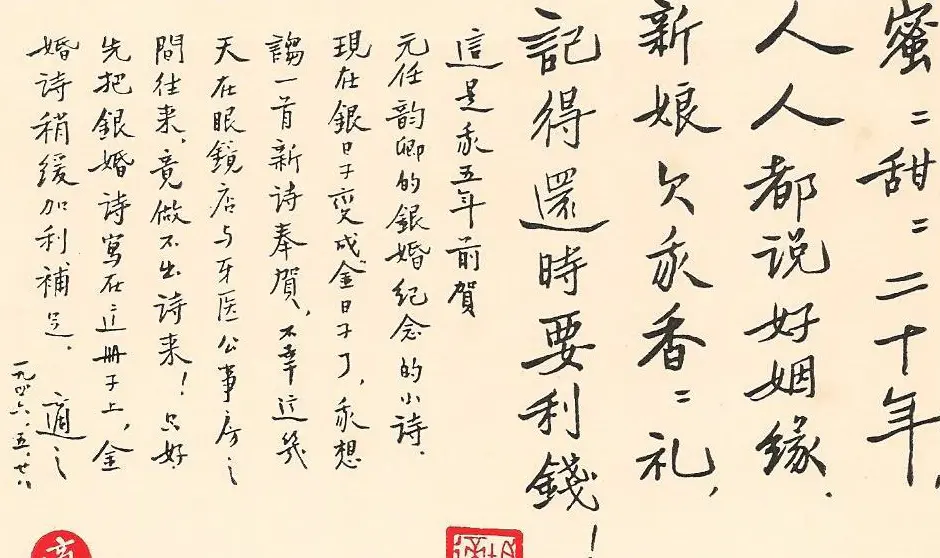 蜜〻甜〻二十年，
人人都说好姻缘．
新娘欠我香〻礼，
記得還時要利錢！
這是我五年前賀
元任韵卿的銀婚紀念的小诗．
現在銀日子变成金日子了，我想
謅一首新诗奉賀，不幸这幾
天在眼鏡店与牙医公事房之
間往来，竟做不出诗来！只好
先把銀婚诗寫在这册子上，金
婚诗稍缓加利補足． 適之
一九四六．五．廿八